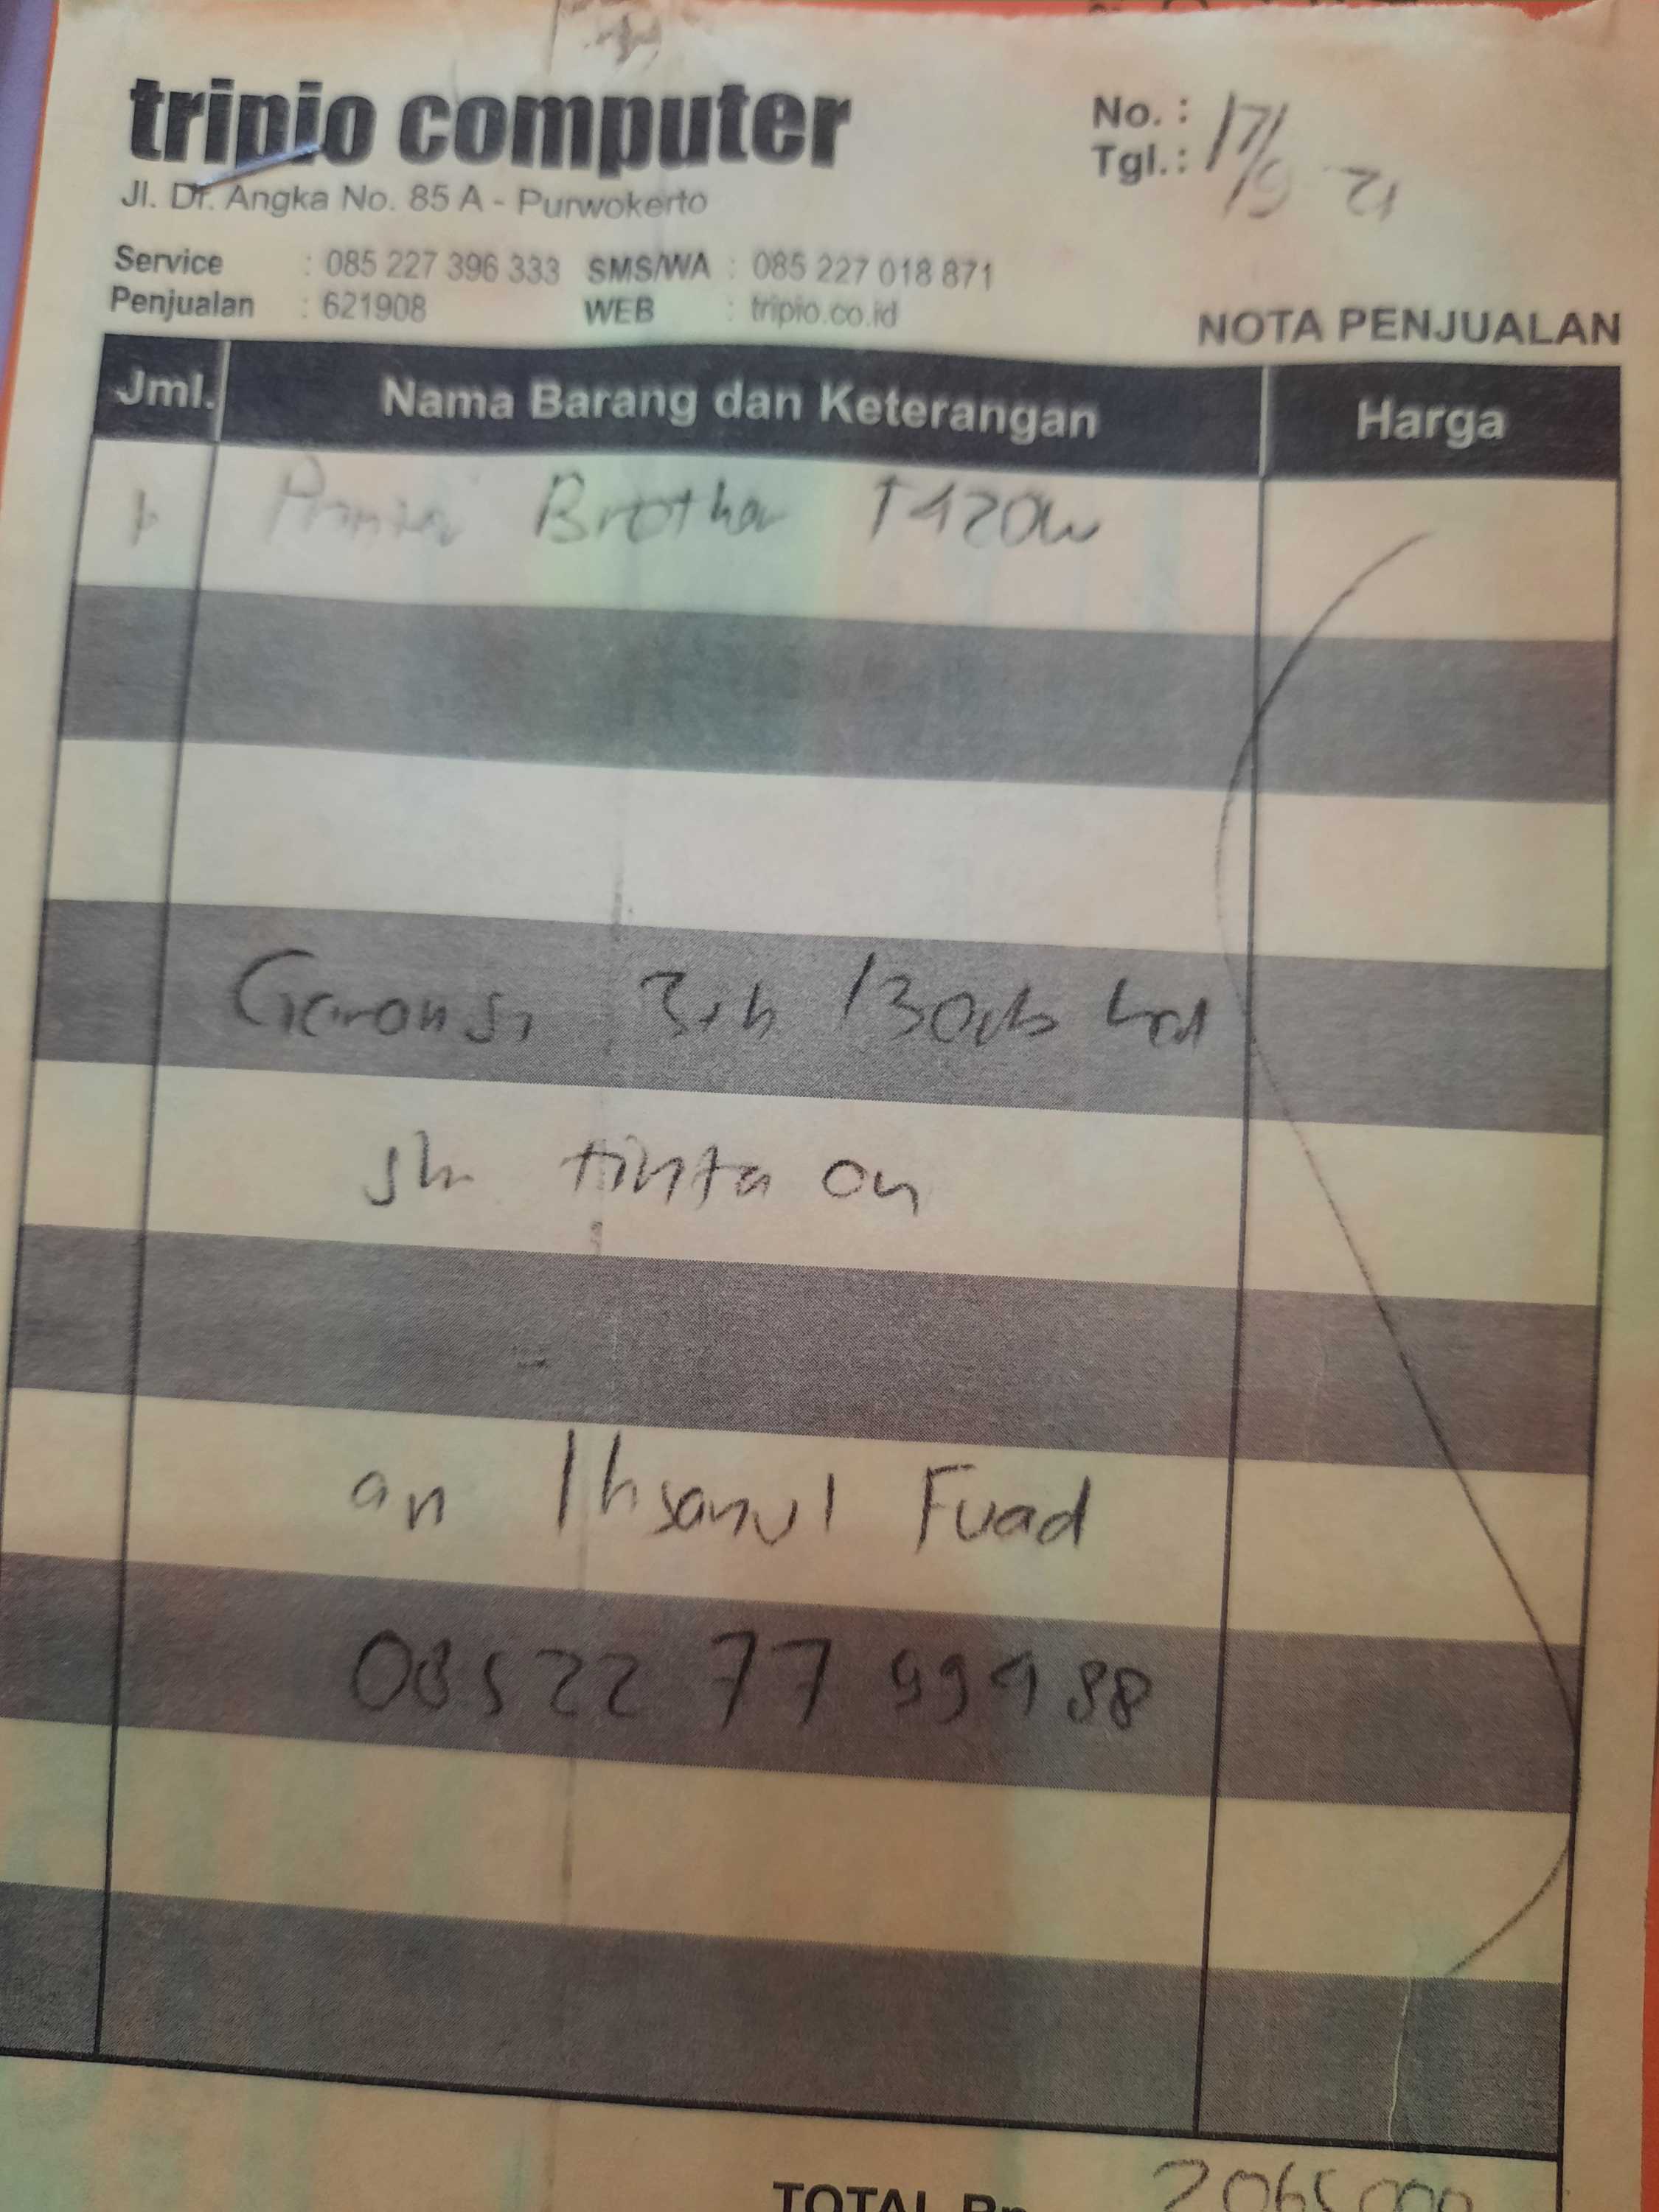 tripio computer
Jl. Dr. Angka No. 85 A - Purwokerto
No. :
Tgl. : 17/9 21
Service : 085 227 396 333 SMS/WA : 085 227 018 871
Penjualan : 621908 WEB : tripio.co.id
NOTA PENJUALAN
Jml. Nama Barang dan Keterangan Harga
1 Printer Brother T420W
Garansi 3th
tinta on
an Ihsanul Fuad
08522 77 99488
TOTAL Rp 2065000